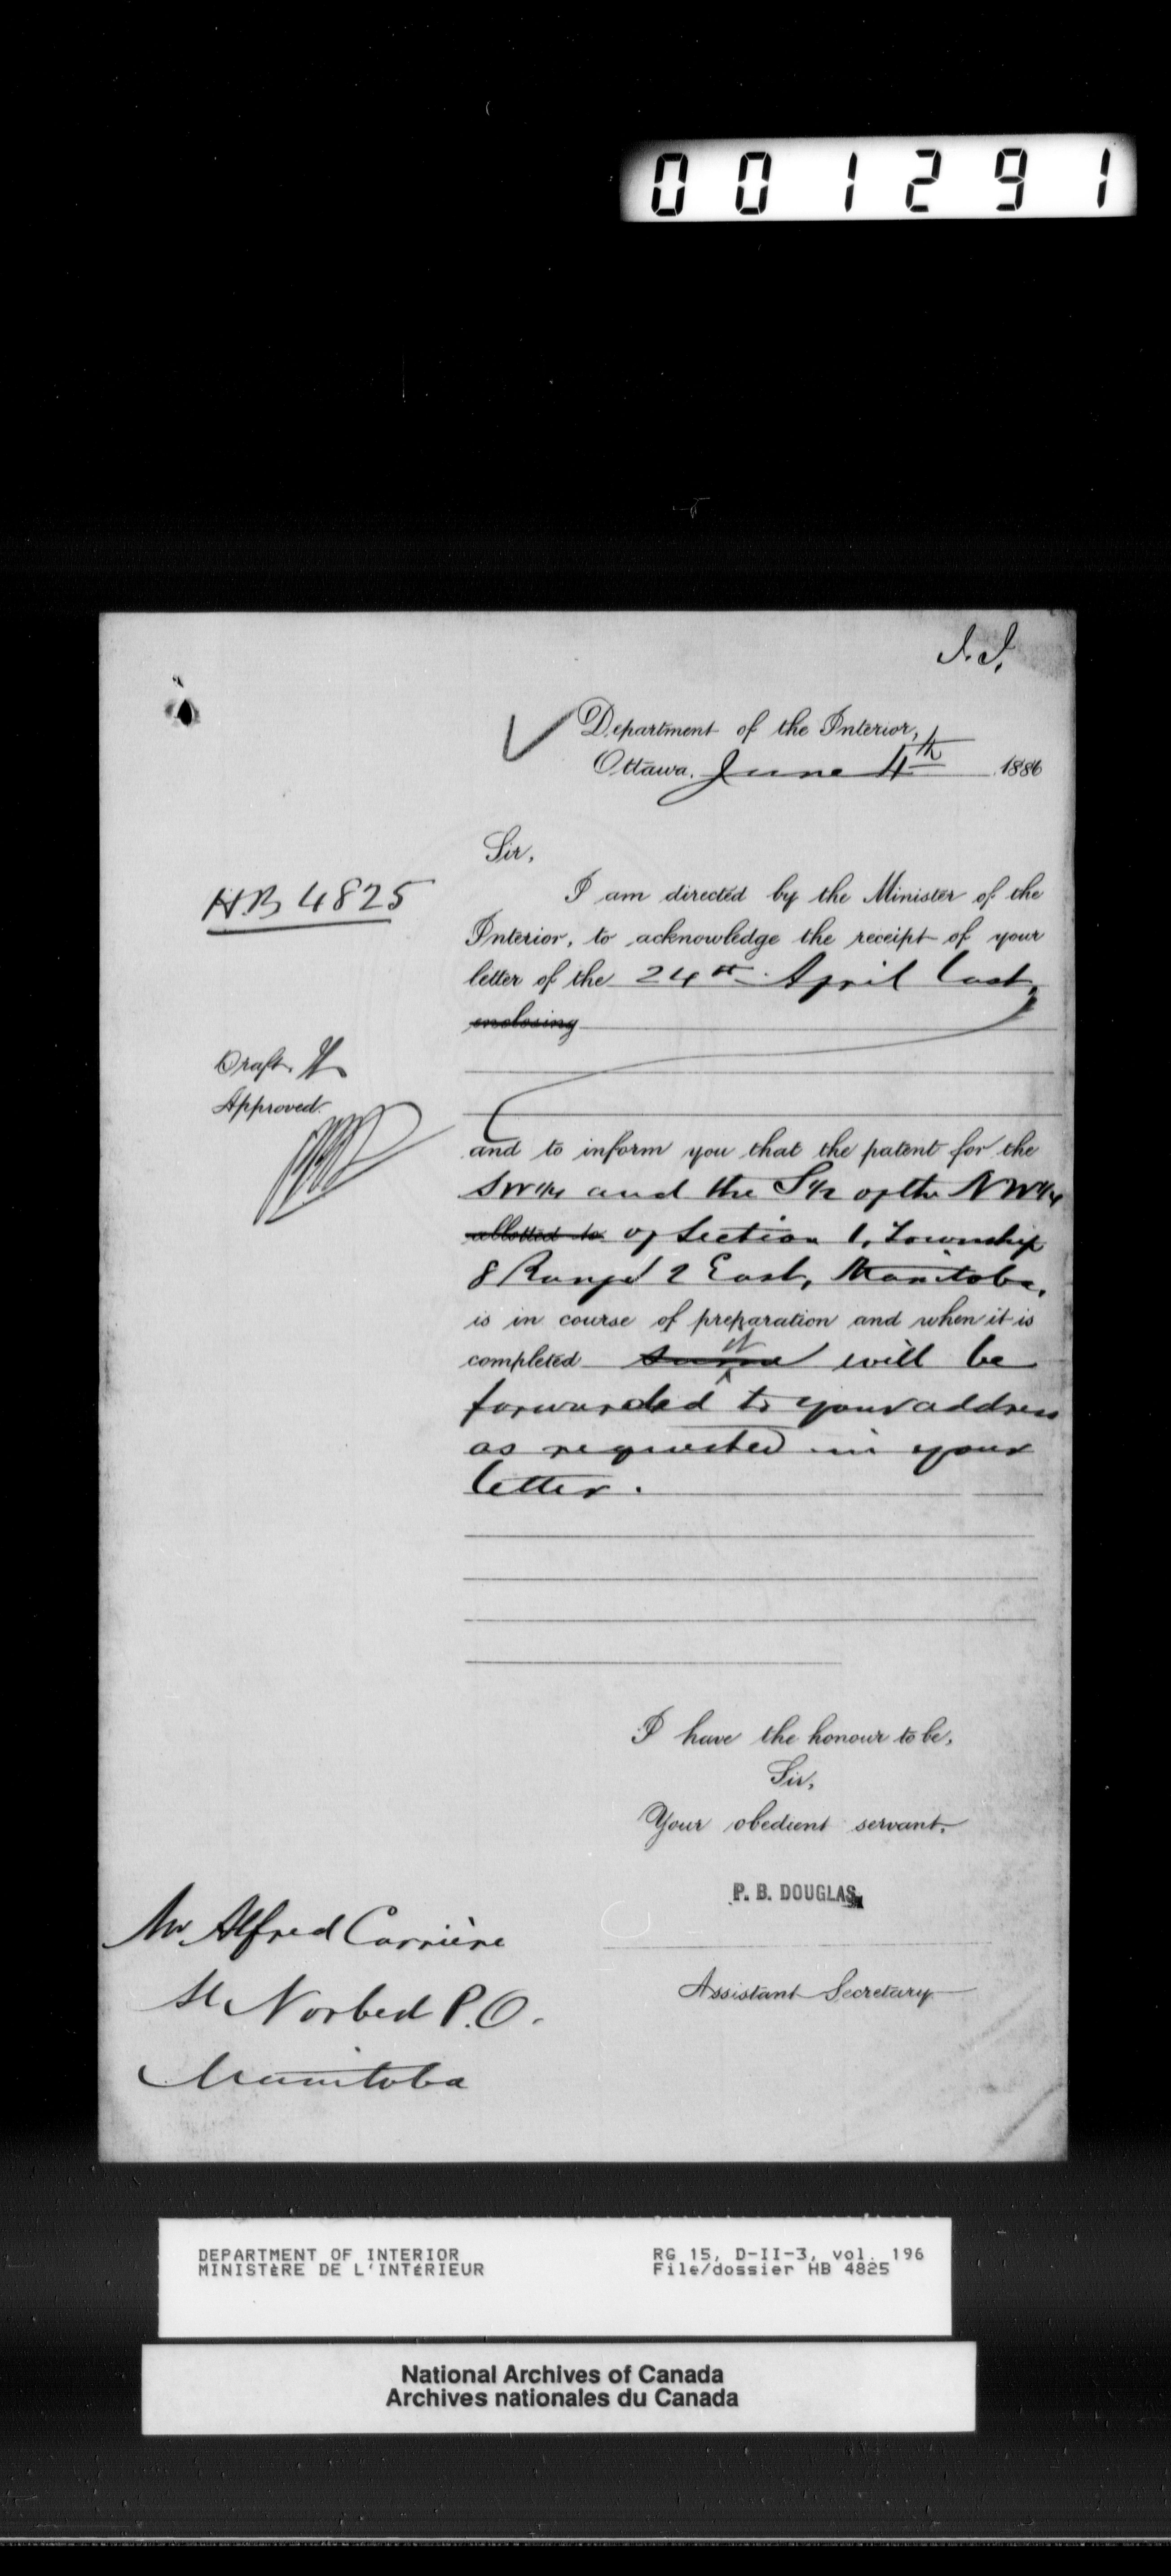 001291
J.J.
Department of the Interior,
Ottawa, June 4th 1886
Sir,
HB 4825
I am directed by the Minister of the
Interior, to acknowledge the receipt of your
letter of the 24th April last,
enclosing
Draft.
Approved.
and to inform you that the patent for the
SW1/4 and the S1/2 of the NW1/4
allotted to of Section 1, Township
8 Range 2 East, Manitoba,
is in course of preparation and when it is
completed same it will be
forwarded to your address
as requested in your
letter.
I have the honour to be,
Sir,
Your obedient servant,
P. B. DOUGLAS,
Assistant Secretary
Mr Alfred Carrière
St Norbert P.O.
Manitoba
DEPARTMENT OF INTERIOR
MINISTÈRE DE L'INTÉRIEUR
RG 15, D-II-3, vol. 196
File/dossier HB 4825
National Archives of Canada
Archives nationales du Canada